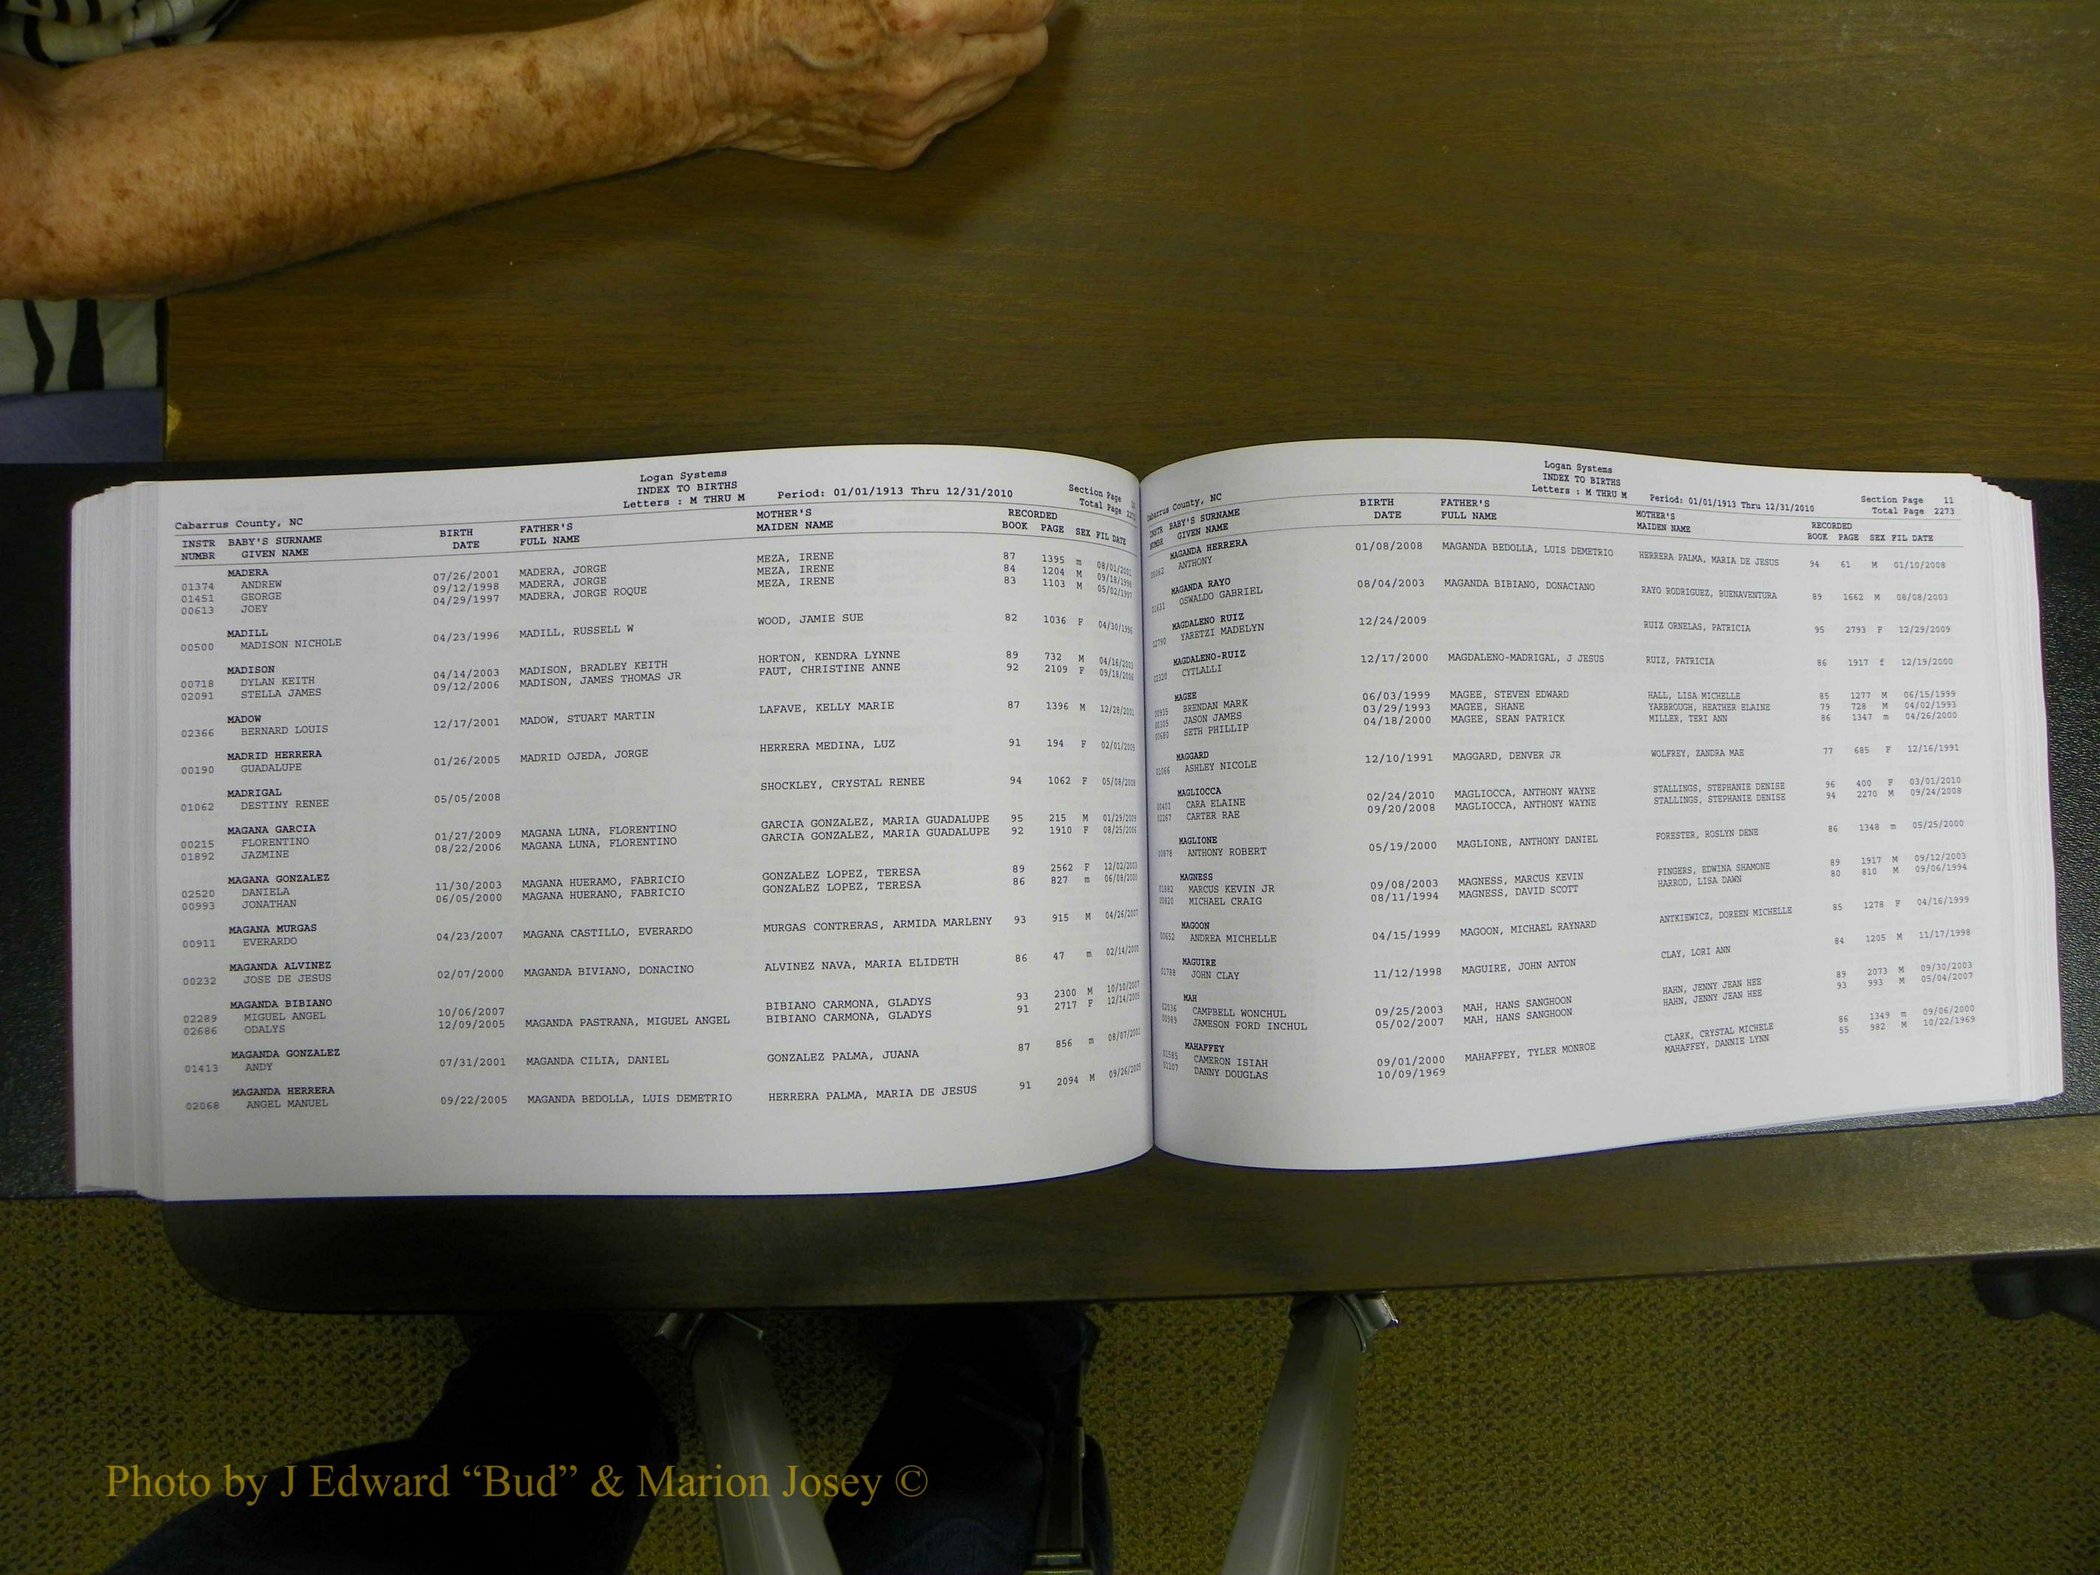 Logan Systems
INDEX TO BIRTHS
Cabarrus County, NC Letters : M THRU M Period: 01/01/1913 Thru 12/31/2010 Section Page
Total Page
INSTR BABY'S SURNAME BIRTH FATHER'S MOTHER'S RECORDED
NUMBR GIVEN NAME DATE FULL NAME MAIDEN NAME BOOK PAGE SEX FIL DATE
MADERA
01374 ANDREW 07/26/2001 MADERA, JORGE MEZA, IRENE 87 1395 m 08/01/2001
01451 GEORGE 09/12/1998 MADERA, JORGE MEZA, IRENE 84 1204 M 09/18/1998
00613 JOEY 04/29/1997 MADERA, JORGE ROQUE MEZA, IRENE 83 1103 M 05/02/1997
MADILL
00500 MADISON NICHOLE 04/23/1996 MADILL, RUSSELL W WOOD, JAMIE SUE 82 1036 F 04/30/1996
MADISON
00718 DYLAN KEITH 04/14/2003 MADISON, BRADLEY KEITH HORTON, KENDRA LYNNE 89 732 M 04/16/2003
02091 STELLA JAMES 09/12/2006 MADISON, JAMES THOMAS JR FAUT, CHRISTINE ANNE 92 2109 F 09/18/2006
MADOW
02366 BERNARD LOUIS 12/17/2001 MADOW, STUART MARTIN LAFAVE, KELLY MARIE 87 1396 M 12/28/2001
MADRID HERRERA
00190 GUADALUPE 01/26/2005 MADRID OJEDA, JORGE HERRERA MEDINA, LUZ 91 194 F 02/01/2005
MADRIGAL
01062 DESTINY RENEE 05/05/2008 SHOCKLEY, CRYSTAL RENEE 94 1062 F 05/08/2008
MAGANA GARCIA
00215 FLORENTINO 01/27/2009 MAGANA LUNA, FLORENTINO GARCIA GONZALEZ, MARIA GUADALUPE 95 215 M 01/29/2009
01892 JAZMINE 08/22/2006 MAGANA LUNA, FLORENTINO GARCIA GONZALEZ, MARIA GUADALUPE 92 1910 F 08/25/2006
MAGANA GONZALEZ
02520 DANIELA 11/30/2003 MAGANA HUERAMO, FABRICIO GONZALEZ LOPEZ, TERESA 89 2562 F 12/02/2003
00993 JONATHAN 06/05/2000 MAGANA HUERANO, FABRICIO GONZALEZ LOPEZ, TERESA 86 827 m 06/08/2000
MAGANA MURGAS
00911 EVERARDO 04/23/2007 MAGANA CASTILLO, EVERARDO MURGAS CONTRERAS, ARMIDA MARLENY 93 915 M 04/26/2007
MAGANDA ALVINEZ
00232 JOSE DE JESUS 02/07/2000 MAGANDA BIVIANO, DONACINO ALVINEZ NAVA, MARIA ELIDETH 86 47 m 02/14/2000
MAGANDA BIBIANO
02289 MIGUEL ANGEL 10/06/2007 BIBIANO CARMONA, GLADYS 93 2300 M 10/10/2007
02686 ODALYS 12/09/2005 MAGANDA PASTRANA, MIGUEL ANGEL BIBIANO CARMONA, GLADYS 91 2717 F 12/14/2005
MAGANDA GONZALEZ
01413 ANDY 07/31/2001 MAGANDA CILIA, DANIEL GONZALEZ PALMA, JUANA 87 856 m 08/07/2001
MAGANDA HERRERA
02068 ANGEL MANUEL 09/22/2005 MAGANDA BEDOLLA, LUIS DEMETRIO HERRERA PALMA, MARIA DE JESUS 91 2094 M 09/26/2005
Logan Systems
INDEX TO BIRTHS
Cabarrus County, NC Letters : M THRU M Period: 01/01/1913 Thru 12/31/2010 Section Page 11
Total Page 2273
INSTR BABY'S SURNAME BIRTH FATHER'S MOTHER'S RECORDED
NUMBR GIVEN NAME DATE FULL NAME MAIDEN NAME BOOK PAGE SEX FIL DATE
MAGANDA HERRERA
00062 ANTHONY 01/08/2008 MAGANDA BEDOLLA, LUIS DEMETRIO HERRERA PALMA, MARIA DE JESUS 94 61 M 01/10/2008
MAGANDA RAYO
01631 OSWALDO GABRIEL 08/04/2003 MAGANDA BIBIANO, DONACIANO RAYO RODRIGUEZ, BUENAVENTURA 89 1662 M 08/08/2003
MAGDALENO RUIZ
02790 YARETZI MADELYN 12/24/2009 RUIZ ORNELAS, PATRICIA 95 2793 F 12/29/2009
MAGDALENO-RUIZ
02320 CYTLALLI 12/17/2000 MAGDALENO-MADRIGAL, J JESUS RUIZ, PATRICIA 86 1917 f 12/19/2000
MAGEE
00935 BRENDAN MARK 06/03/1999 MAGEE, STEVEN EDWARD HALL, LISA MICHELLE 85 1277 M 06/15/1999
00305 JASON JAMES 03/29/1993 MAGEE, SHANE YARBROUGH, HEATHER ELAINE 79 728 M 04/02/1993
00680 SETH PHILLIP 04/18/2000 MAGEE, SEAN PATRICK MILLER, TERI ANN 86 1347 m 04/26/2000
MAGGARD
01066 ASHLEY NICOLE 12/10/1991 MAGGARD, DENVER JR WOLFREY, ZANDRA MAE 77 685 F 12/16/1991
MAGLIOCCA
00401 CARA ELAINE 02/24/2010 MAGLIOCCA, ANTHONY WAYNE STALLINGS, STEPHANIE DENISE 96 400 F 03/01/2010
02267 CARTER RAE 09/20/2008 MAGLIOCCA, ANTHONY WAYNE STALLINGS, STEPHANIE DENISE 94 2270 M 09/24/2008
MAGLIONE
00878 ANTHONY ROBERT 05/19/2000 MAGLIONE, ANTHONY DANIEL FORESTER, ROSLYN DENE 86 1348 m 05/25/2000
MAGNESS
01882 MARCUS KEVIN JR 09/08/2003 MAGNESS, MARCUS KEVIN FINGERS, EDWINA SHAMONE 89 1917 M 09/12/2003
00820 MICHAEL CRAIG 08/11/1994 MAGNESS, DAVID SCOTT HARROD, LISA DAWN 80 810 M 09/06/1994
MAGOON
00652 ANDREA MICHELLE 04/15/1999 MAGOON, MICHAEL RAYNARD ANTKIEWICZ, DOREEN MICHELLE 85 1278 F 04/16/1999
MAGUIRE
01788 JOHN CLAY 11/12/1998 MAGUIRE, JOHN ANTON CLAY, LORI ANN 84 1205 M 11/17/1998
MAH
02036 CAMPBELL WONCHUL 09/25/2003 MAH, HANS SANGHOON HAHN, JENNY JEAN HEE 89 2073 M 09/30/2003
00989 JAMESON FORD INCHUL 05/02/2007 MAH, HANS SANGHOON HAHN, JENNY JEAN HEE 93 993 M 05/04/2007
MAHAFFEY
01585 CAMERON ISIAH 09/01/2000 MAHAFFEY, TYLER MONROE CLARK, CRYSTAL MICHELE 86 1349 m 09/06/2000
01107 DANNY DOUGLAS 10/09/1969 MAHAFFEY, DANNIE LYNN 55 982 M 10/22/1969
Photo by J Edward “Bud” & Marion Josey ©